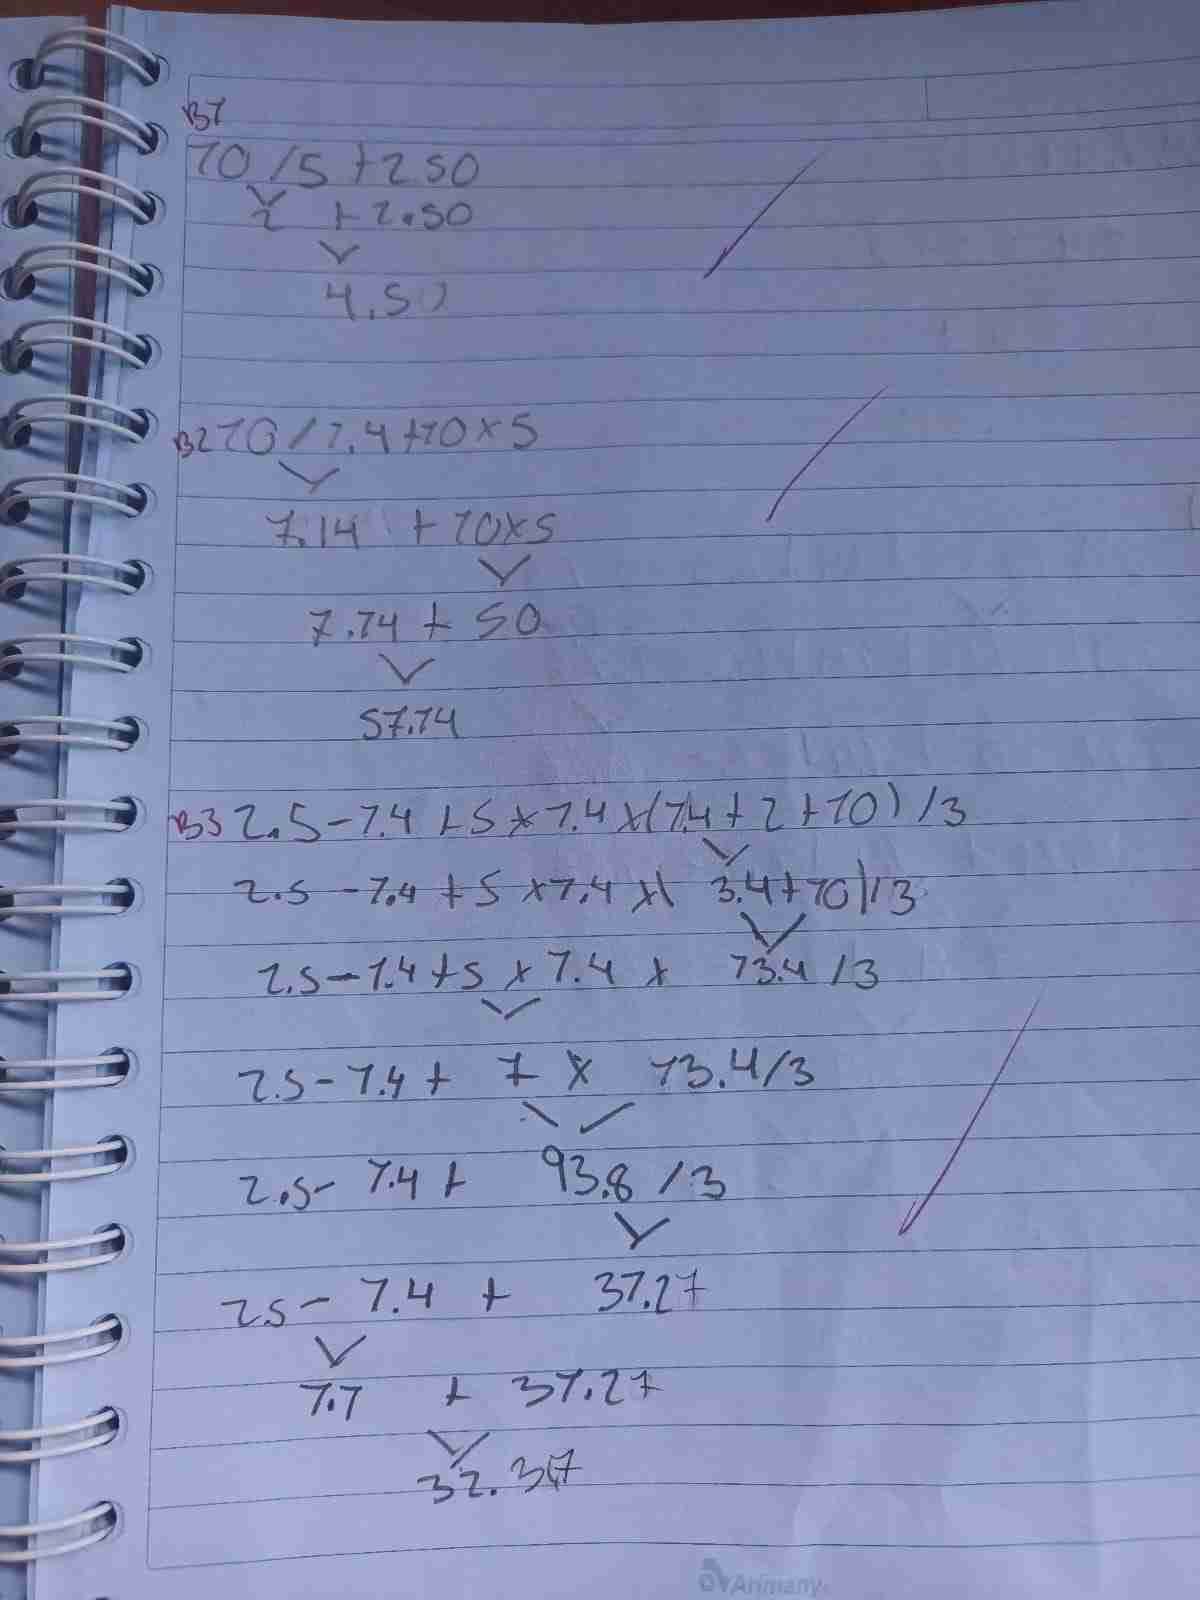 B1
10 /5 +2.50
2 +2.50
4.50
B2 10 / 1.4 +10 x 5
7.14 + 10x5
7.14 + 50
57.14
B3 2.5 - 1.4 + 5 x 1.4 x (1.4 + 2 + 10) / 3
2.5 - 1.4 + 5 x 1.4 x ( 3.4 + 10 ) / 3
2.5 - 1.4 + 5 x 1.4 x 13.4 / 3
2.5 - 1.4 + 7 x 13.4 / 3
2.5 - 1.4 + 93.8 / 3
2.5 - 1.4 + 31.27
1.1 + 31.27
32.37
Arimany